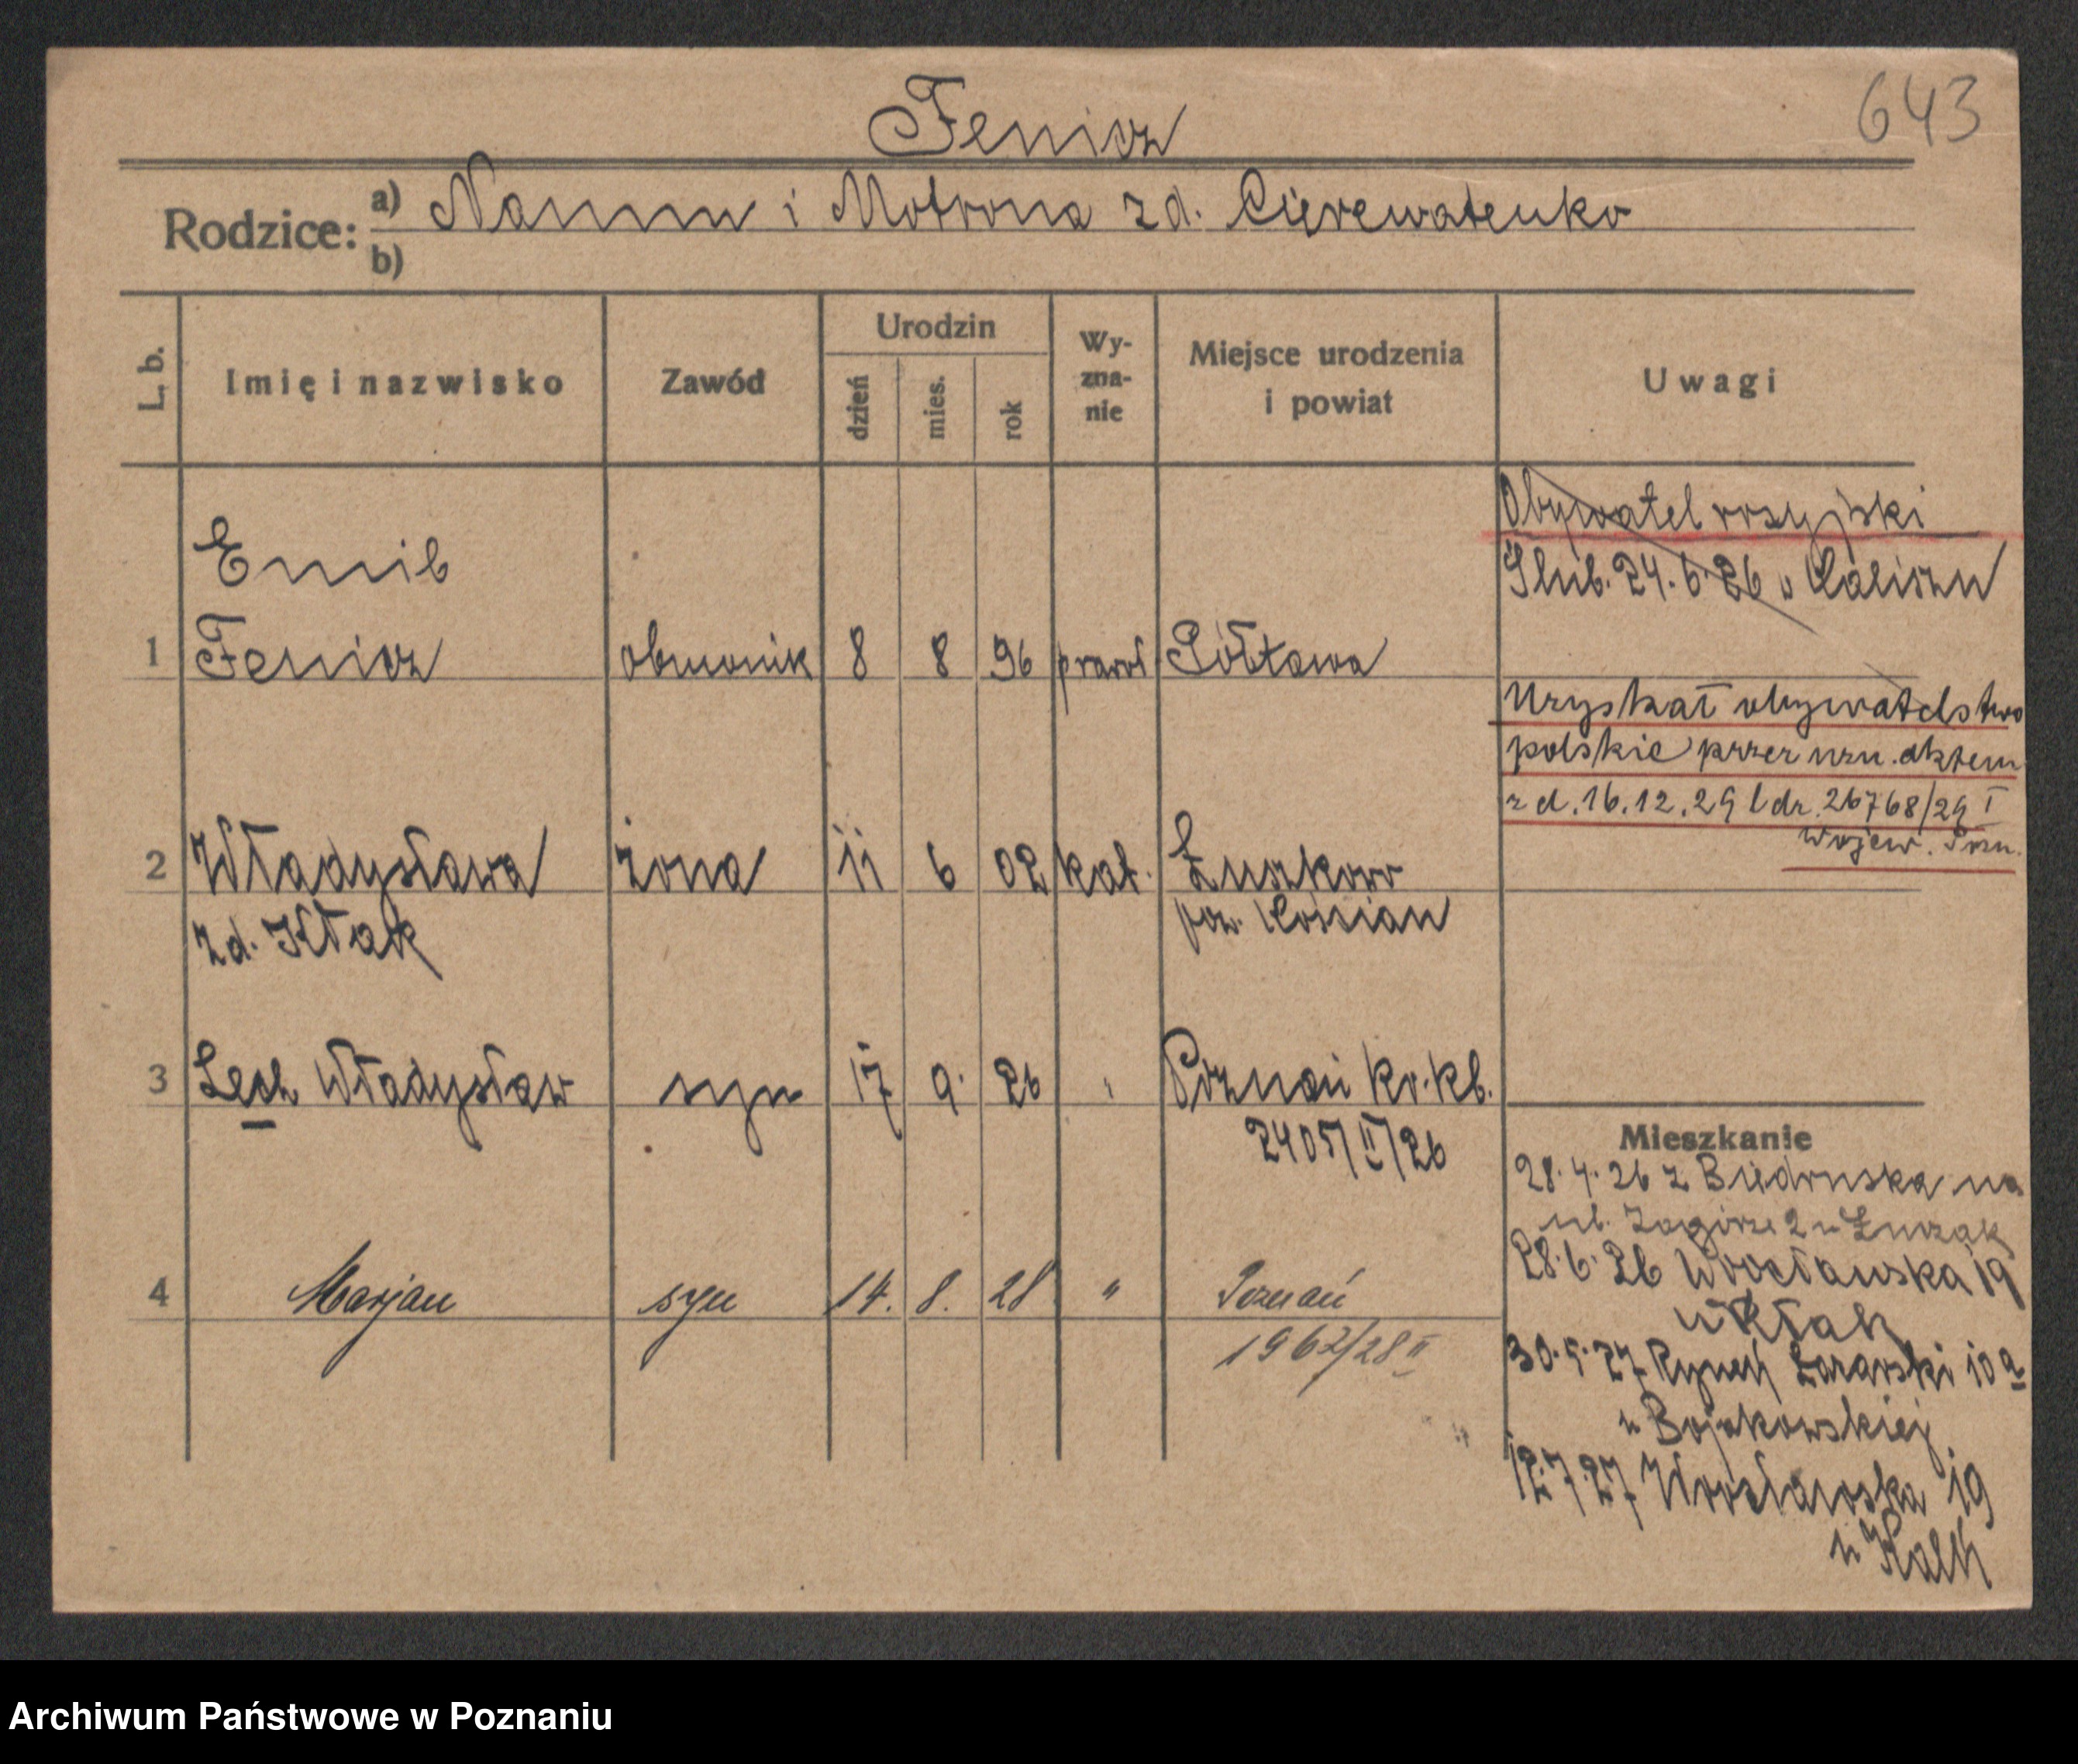 643
Fenicz
Rodzice: a) Naum i Motrona zd. Cierewatenko
b)
L. b.
Imię i nazwisko
Zawód
Urodzin
dzień
mies.
rok
Wy-
zna-
nie
Miejsce urodzenia
i powiat
Uwagi
Obywatel rosyjski
Ślub. 24.6.26 w Kaliszu
Emil
1 Fenicz obuwnik 8 8 96 prawosł. Półtawa
Uzyskał obywatelstwo
polskie przez uzn. aktem
z d. 16.12.29 l dz. 26768/29 I
Wojew. Pozn.
2 Władysława żona 11 6 02 kat. Łuszkowo
zd. Kłak pow. Kościan
3 Lech Władysław syn 17 9. 26 " Poznań kr. kb.
2405/II/26
4 Marjan syn 14. 8. 28 " Poznań
1967/28 II
Mieszkanie
28.4.26 z Biedruska na
ul. Zagórze 2 u Łuczak
28.6.26 Wrocławska 19
u Kłak
30.5.27 Rynek Łazarski 10 a
u Bojakowskiej
12.7.27 Wrocławska 19
u
Archiwum Państwowe w Poznaniu